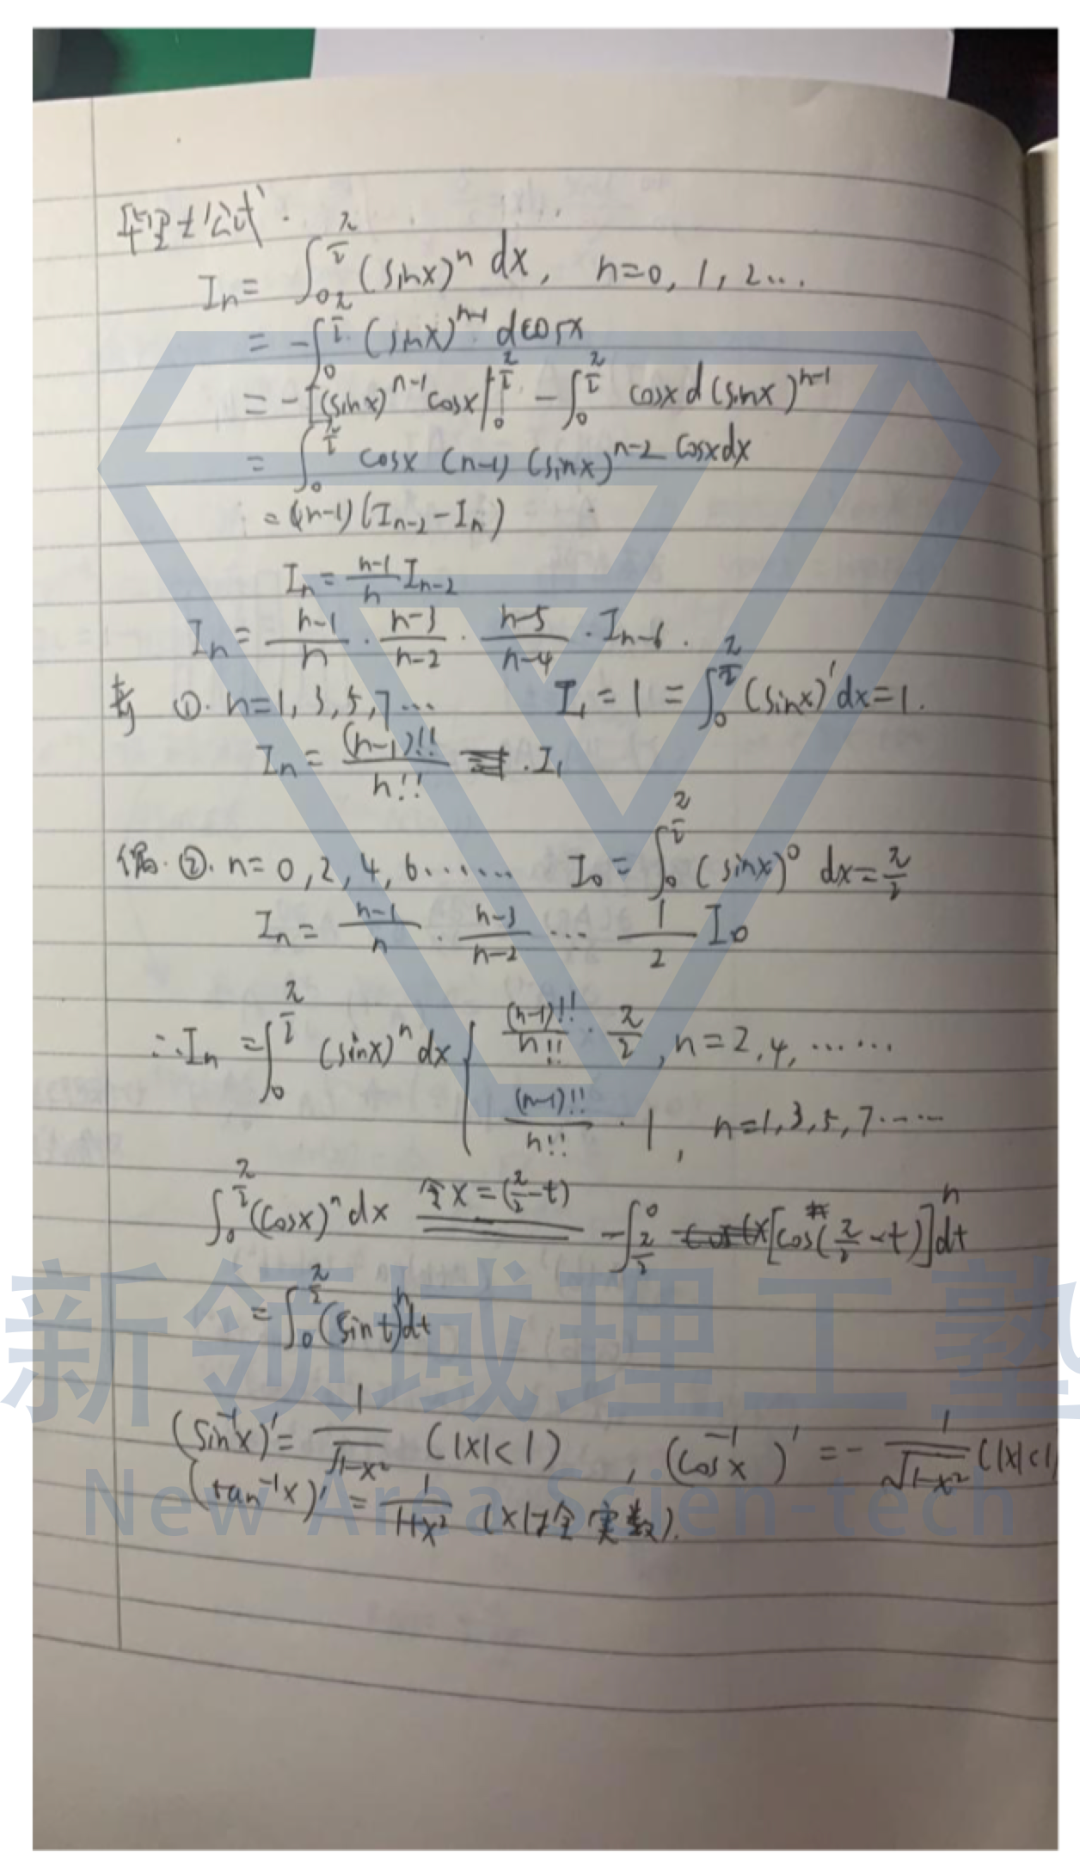 华里士公式.
I_n = ∫_0^{π/2} (sinx)^n dx, n=0, 1, 2...
= -∫_0^{π/2} (sinx)^{n-1} dcosx
= -[(sinx)^{n-1} cosx|_0^{π/2} - ∫_0^{π/2} cosx d(sinx)^{n-1}
= ∫_0^{π/2} cosx (n-1) (sinx)^{n-2} cosxdx
= (n-1)(I_{n-2} - I_n)
I_n = \frac{n-1}{n} I_{n-2}
I_n = \frac{n-1}{n} · \frac{n-3}{n-2} · \frac{n-5}{n-4} · I_{n-6}.
奇 ①. n=1, 3, 5, 7... I_1 = 1 = ∫_0^{π/2} (sinx)^1 dx=1.
I_n = \frac{(n-1)!!}{n!!} . I_1
偶. ②. n= 0, 2, 4, 6....... I_0 = ∫_0^{π/2} (sinx)^0 dx = \frac{π}{2}
I_n = \frac{n-1}{n} · \frac{n-3}{n-2} ... \frac{1}{2} I_0
∴I_n = ∫_0^{π/2} (sinx)^n dx { \frac{(n-1)!!}{n!!} · \frac{π}{2}, n=2, 4, ......
\frac{(n-1)!!}{n!!} · 1, n=1, 3, 5, 7.....
∫_0^{π/2} (cosx)^n dx 令x=(\frac{π}{2}-t) = -∫_{π/2}^0 [cos(\frac{π}{2}-t)]^n dt
= ∫_0^{π/2} (sint)^n dt
新领域理工塾
(sin^{-1}x)' = \frac{1}{\sqrt{1-x^2}} (|x|<1), (cos^{-1}x)' = -\frac{1}{\sqrt{1-x^2}} (|x|<1)
(tan^{-1}x)' = \frac{1}{1+x^2} (x是全实数).
New Area Scien-tech